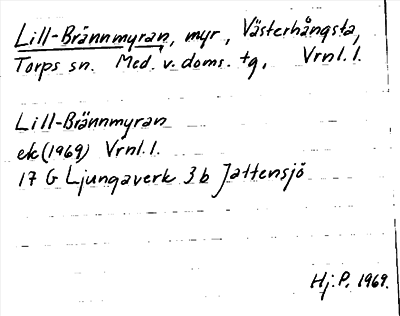 Lill-Brännmyran, myr, Västerhångsta,
Torps sn. Med. v. doms. tg, Vrnl. l.
Lill-Brännmyran
ek (1969) Vrnl. l.
17 G Ljungaverk 3 b Jattensjö
Hj. P. 1969.